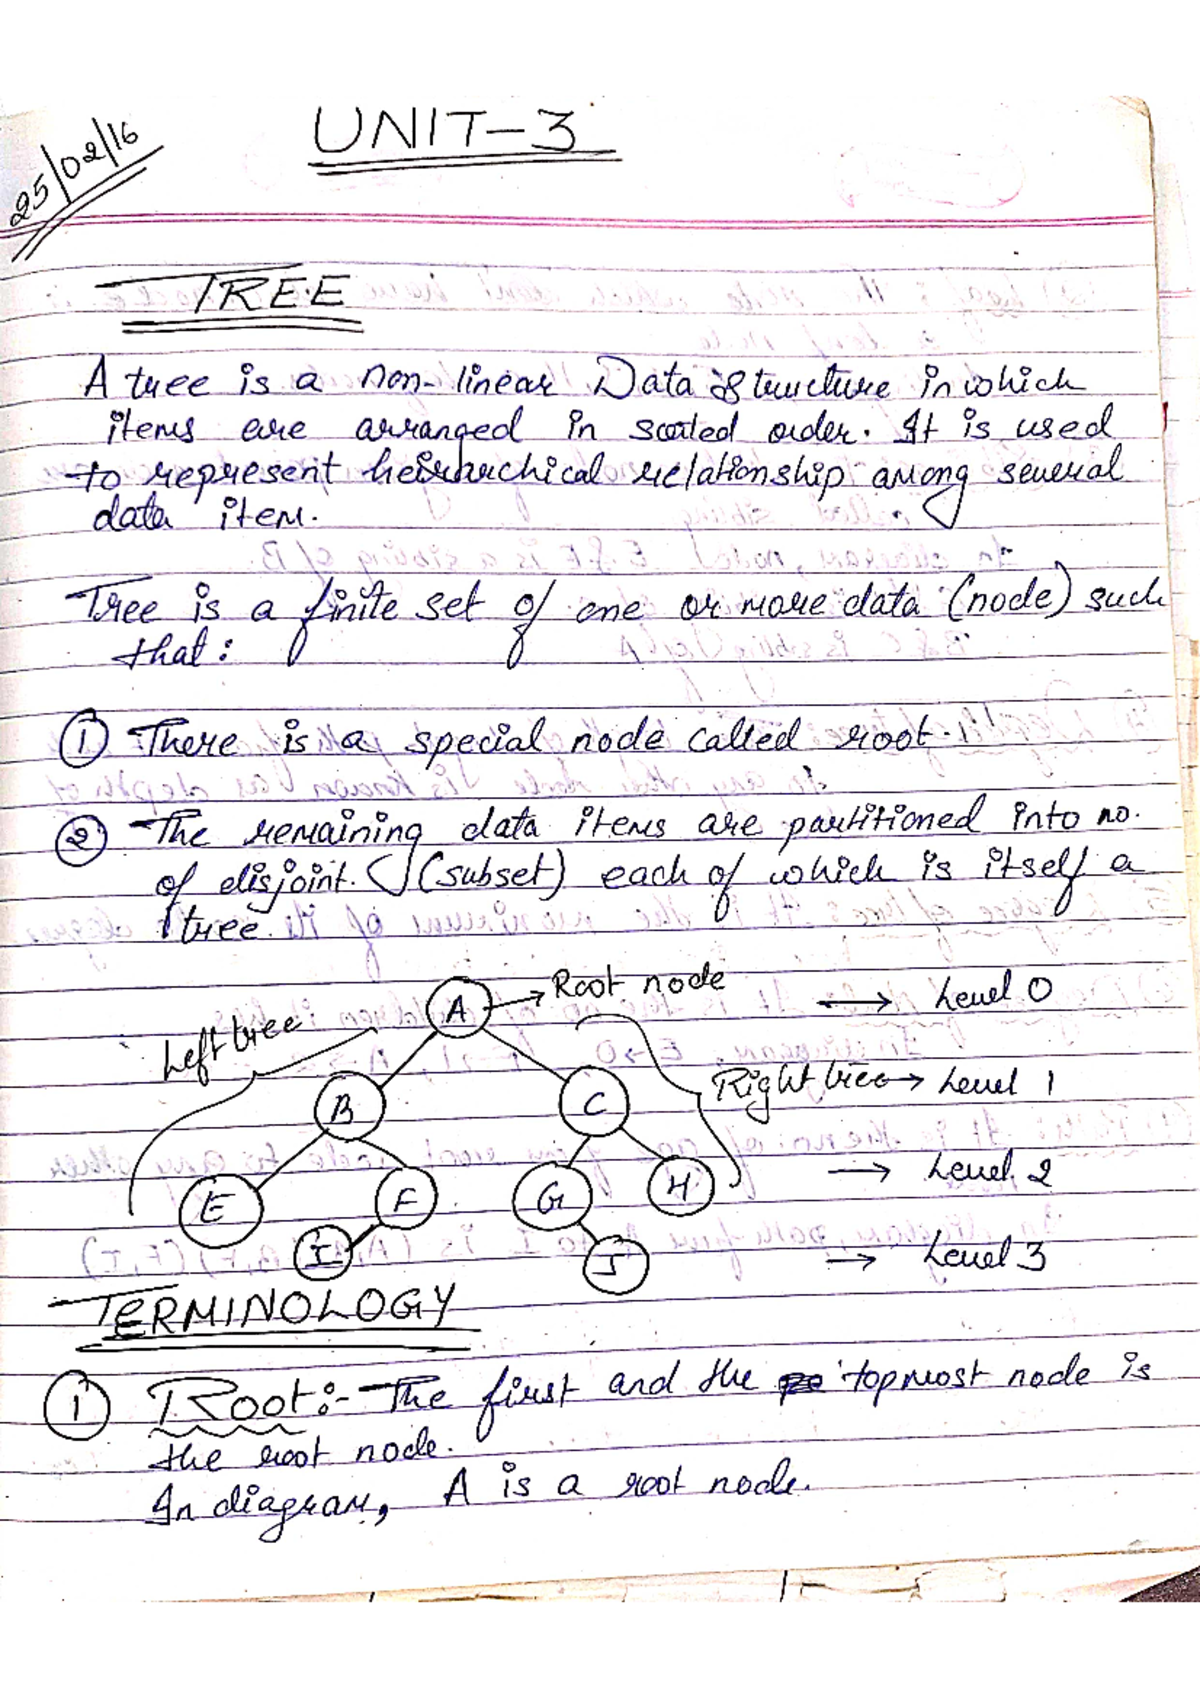 25/02/16
UNIT-3
TREE
A tree is a non-linear Data Structure in which
items are arranged in sorted order. It is used
to represent heirarchical relationship among several
data item.
Tree is a finite set of one or more data (node) such
that:
① There is a special node called root.
② The remaining data items are partitioned into no.
of disjoint. (subset) each of which is itself a
tree.
A → Root node → Level 0
Left tree
B C Right tree → Level 1
E F G H → Level 2
I J → Level 3
TERMINOLOGY
① Root:- The first and the topmost node is
the root node.
In diagram, A is a root node.